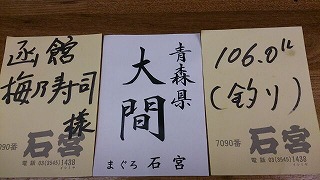 函館
梅乃寿司
様
7090番
石宮
電話 03(3545)1438
青森県
大間
まぐろ 石宮
106.0k
(釣り)
7090番
石宮
電話 03(3545)1438